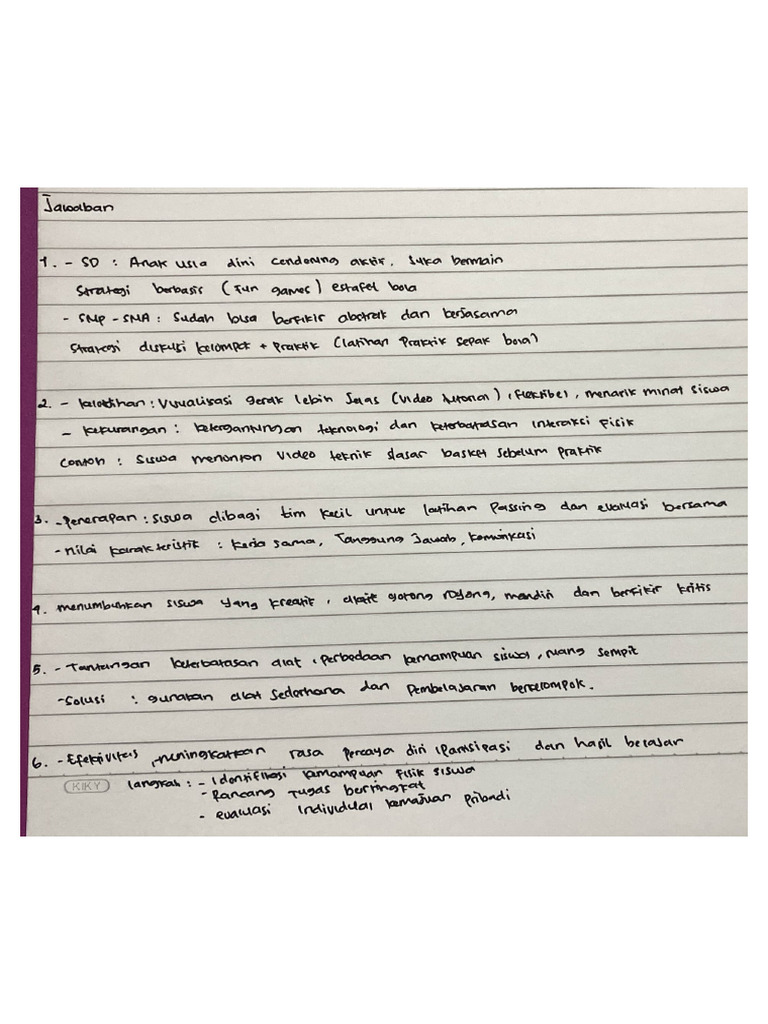 Jawaban
1. - SD : Anak usia dini cenderung aktif, suka bermain
Strategi berbasis (Fun games) estafel bola
- SMP - SMA : Sudah bisa berfikir abstrak dan berjasama
Strategi diskusi kelompok + praktik (latihan praktik sepak bola)
2. - kelebihan : Visualisasi gerak lebih Jelas (video tutorial), flektibel, menarik minat siswa
- kekurangan : ketergantungan teknologi dan keterbatasan interaksi fisik
Contoh : Siswa menonton video teknik dasar basket sebelum praktik
3. - penerapan : siswa dibagi tim kecil untuk latihan passing dan evaluasi bersama
- nilai karakteristik : kerja sama, Tanggung Jawab, komunikasi
4. menumbuhkan siswa yang kreatif, gotong royong, mandiri dan berfikir kritis
5. - Tantangan keterbatasan alat, perbedaan kemampuan siswa, ruang sempit
- Solusi : gunakan alat sederhana dan pembelajaran berkelompok.
6. - Efektivitas, meningkatkan rasa percaya diri, partisipasi dan hasil belajar
KIKY langkah : - Identifikasi kemampuan fisik siswa
- Rancang Tugas bertingkat
- evaluasi individual kemajuan pribadi